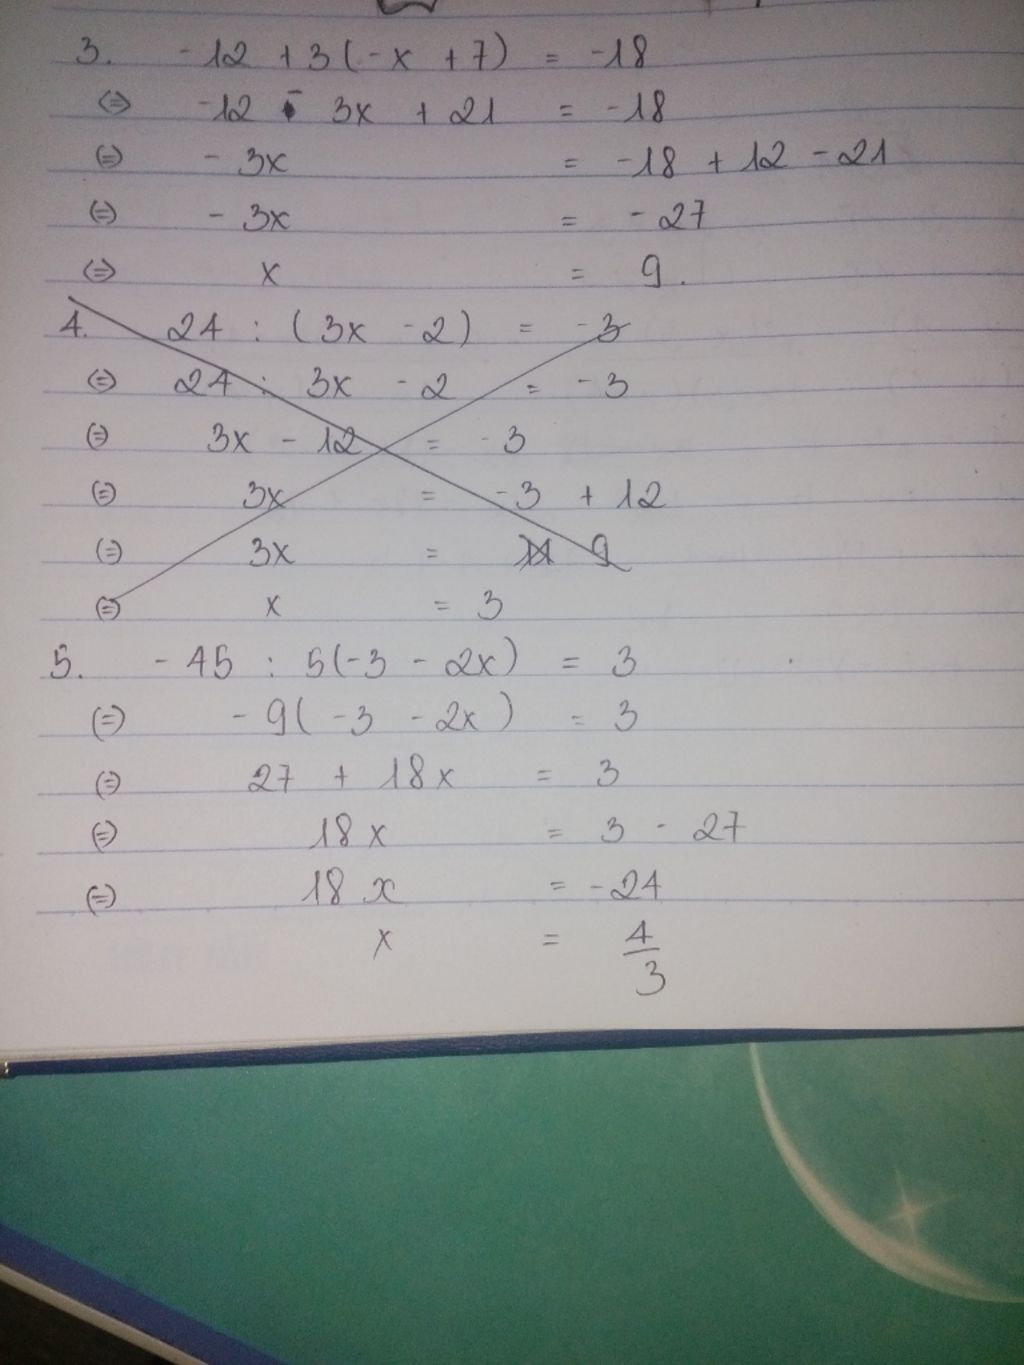 3. -12 + 3(-x + 7) = -18
⇔ -12 - 3x + 21 = -18
⇔ - 3x = -18 + 12 - 21
⇔ - 3x = - 27
⇔ x = 9.
4. 24 : (3x - 2) = -3
⇔ 24 : 3x - 2 = -3
⇔ 3x - 12 = -3
⇔ 3x = -3 + 12
⇔ 3x = 9
⇔ x = 3
5. - 45 : 5(-3 - 2x) = 3
⇔ - 9(-3 - 2x) = 3
⇔ 27 + 18x = 3
⇔ 18x = 3 - 27
⇔ 18x = -24
x = 4/3